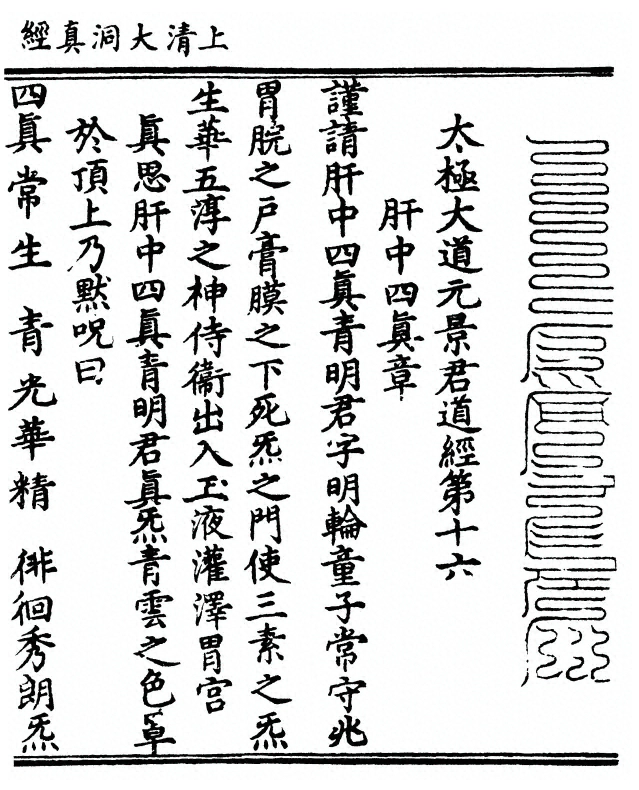 上清大洞真經
太極大道元景君道經第十六
肝中四眞章
謹請肝中四眞青明君字明輪童子常守兆
胃脘之戶膏膜之下死炁之門使三素之炁
生華五淳之神侍衞出入玉液灌澤胃宮
眞思肝中四眞青明君眞炁青雲之色罩
於頂上乃默呪曰
四眞常生　青光華精　徘徊秀朗炁